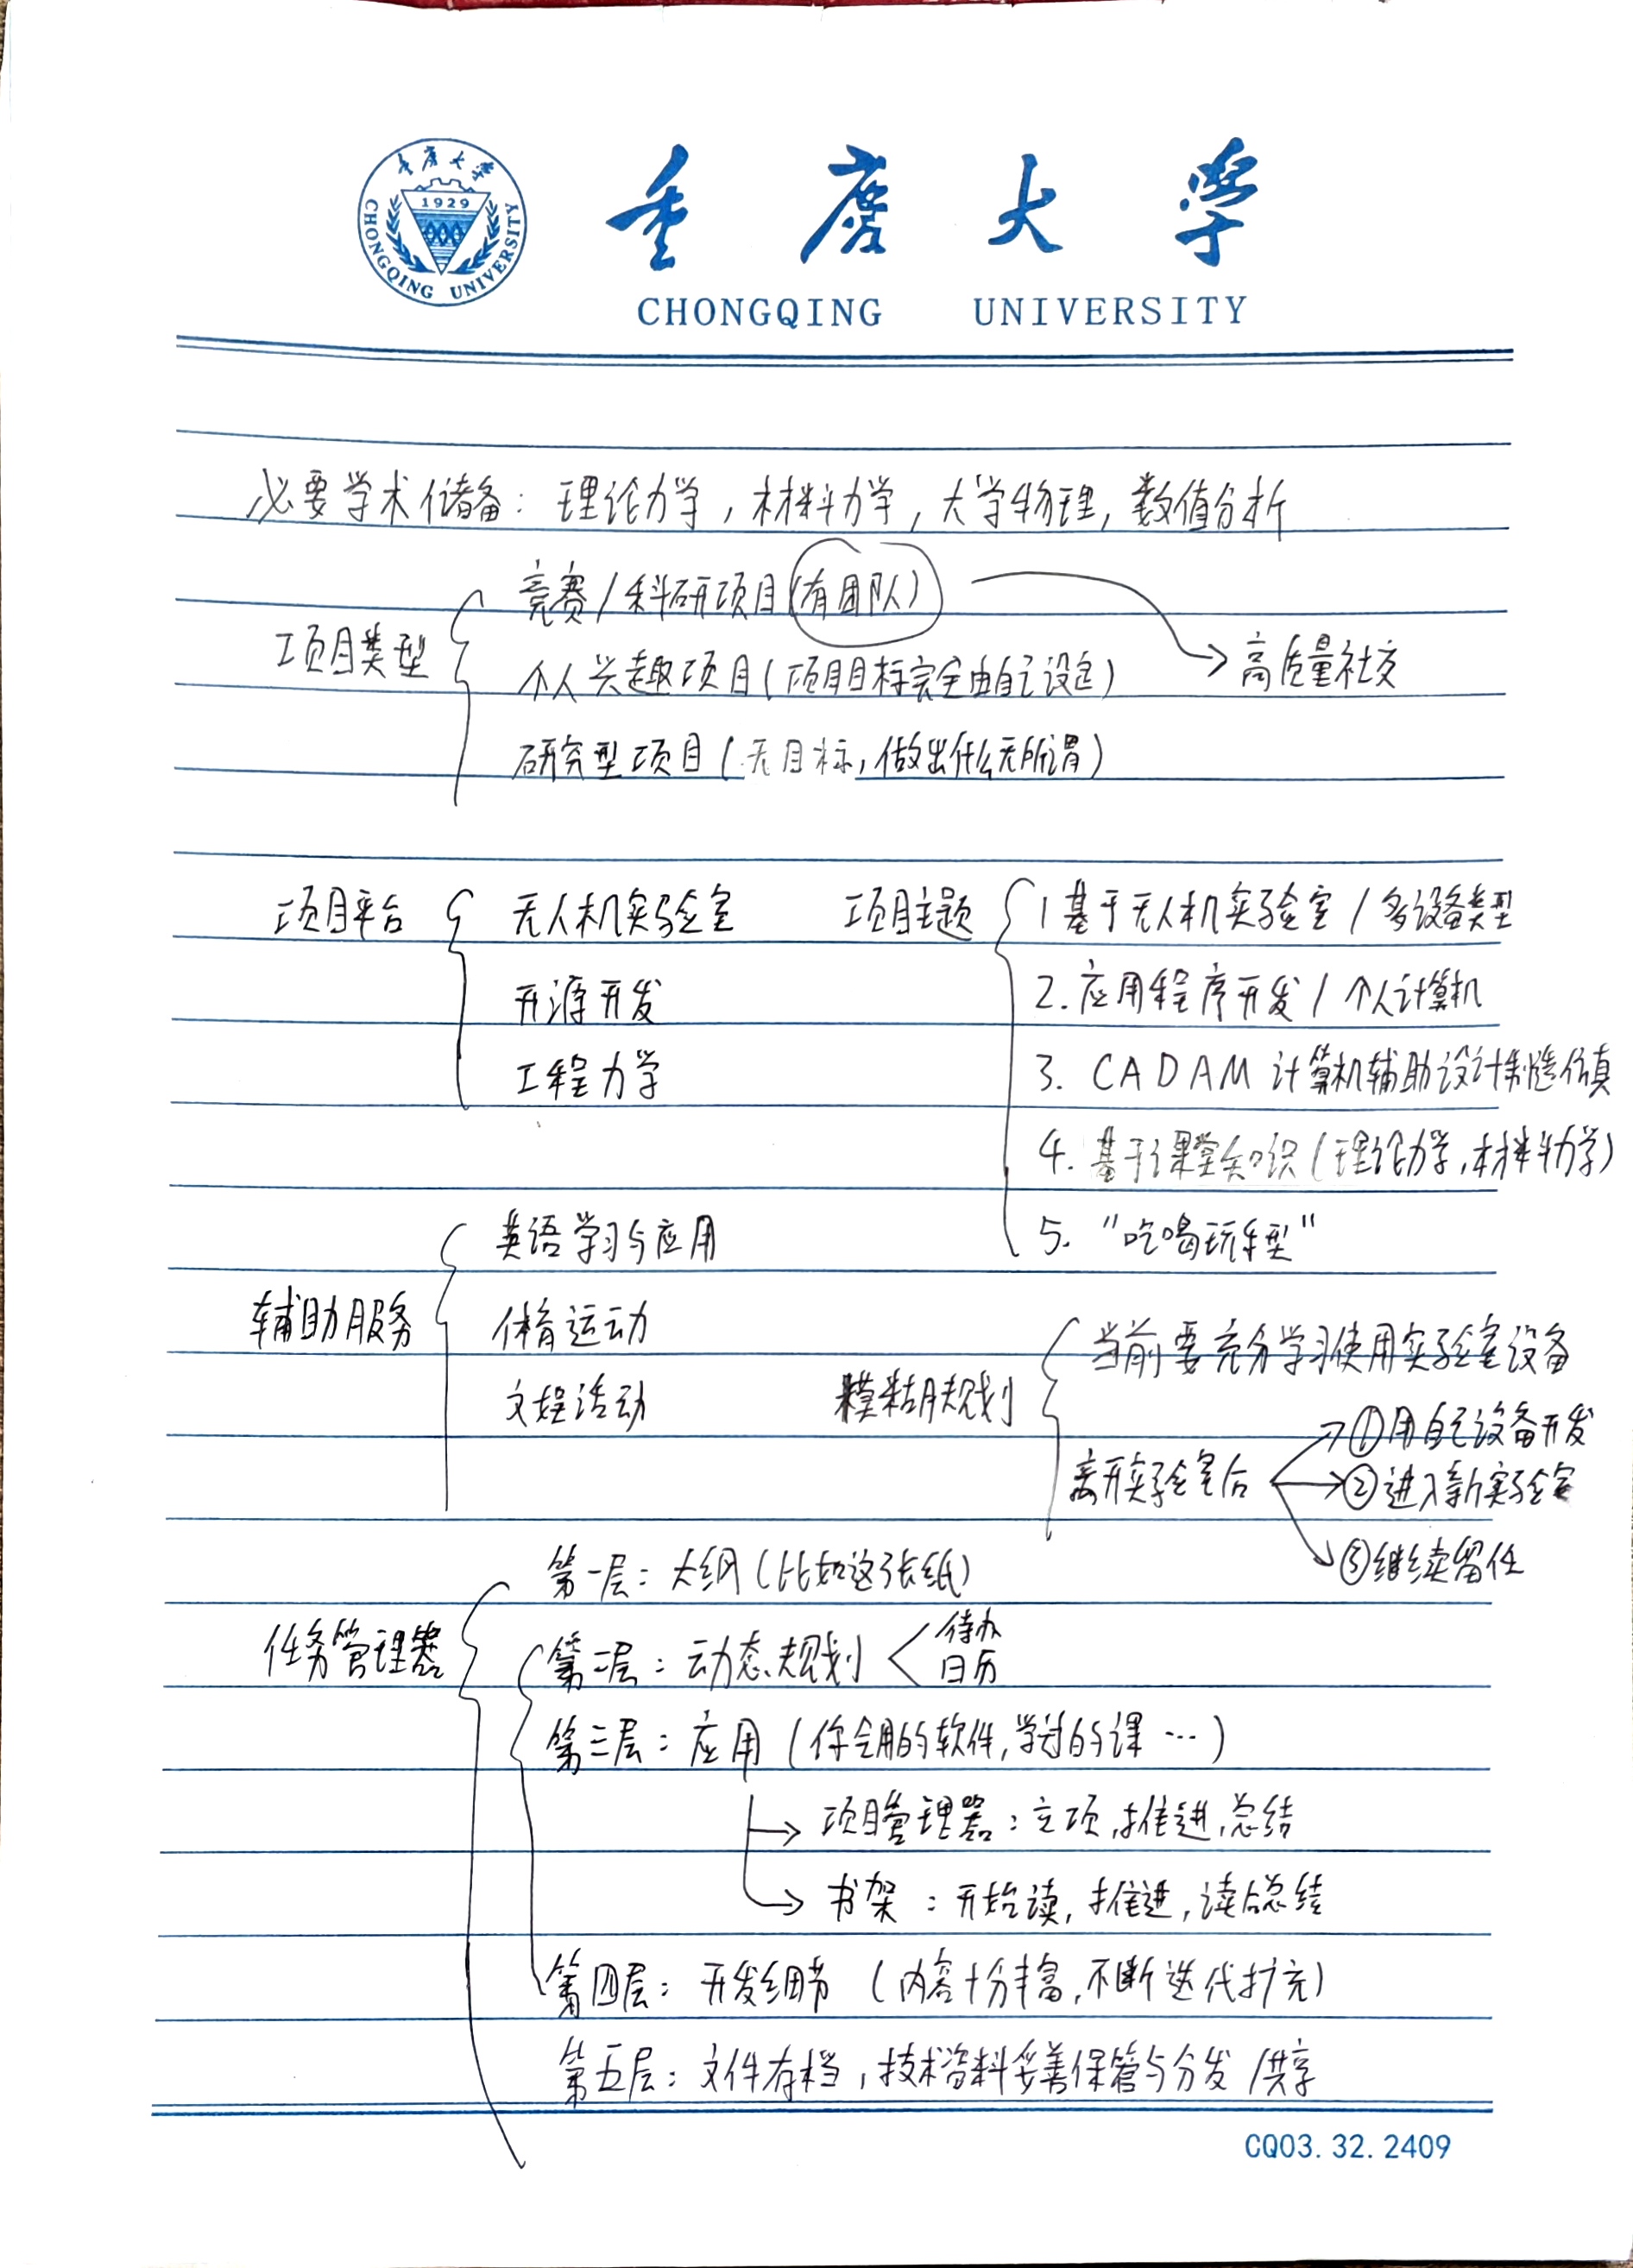 重庆大学
1929
CHONGQING UNIVERSITY
重庆大学
CHONGQING UNIVERSITY
必要学术储备：理论力学，材料力学，大学物理，数值分析
项目类型
竞赛/科研项目(有团队)
高质量社交
个人兴趣项目(项目目标完全由自己设定)
研究型项目(无目标,做出什么无所谓)
项目平台
无人机实验室
开源开发
工程力学
项目主题
1 基于无人机实验室/多设备类型
2. 应用程序开发/个人计算机
3. CADAM 计算机辅助设计制造仿真
4. 基于课堂知识(理论力学,材料力学)
5. “吃喝玩乐型”
辅助服务
英语学习与应用
体育运动
文娱活动
模糊规划
当前要充分学习使用实验室设备
离开实验室后
①用自己设备开发
②进入新实验室
③继续留任
任务管理器
第一层：大纲(比如这张纸)
第二层：动态规划
待办
日历
第三层：应用(你会用的软件,学过的课…)
项目管理器：立项,推进,总结
书架：开始读,推进,读后总结
第四层：开发细节(内容十分丰富,不断迭代扩充)
第五层：文件存档，技术资料妥善保管与分发/共享
CQ03.32.2409